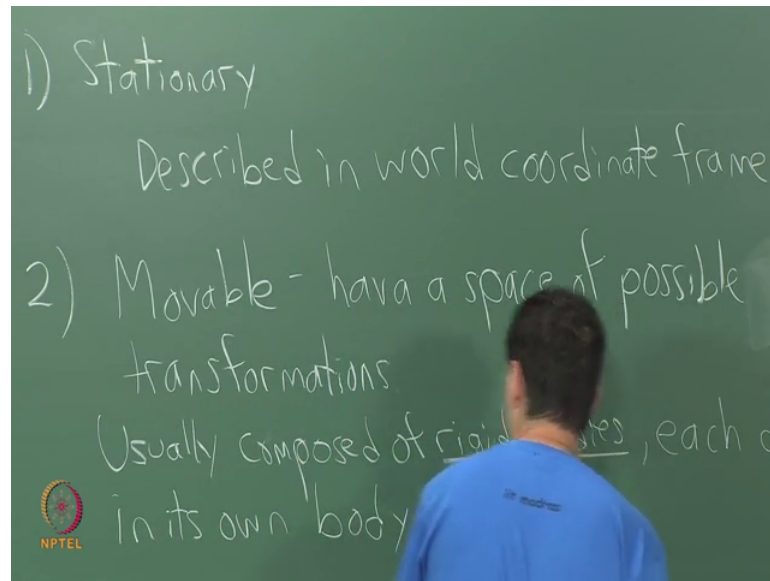 1) Stationary
Described in world coordinate frame
2) Movable - hava a space of possible
transformations
Usually composed of rigid bodies, each
in its own body
NPTEL